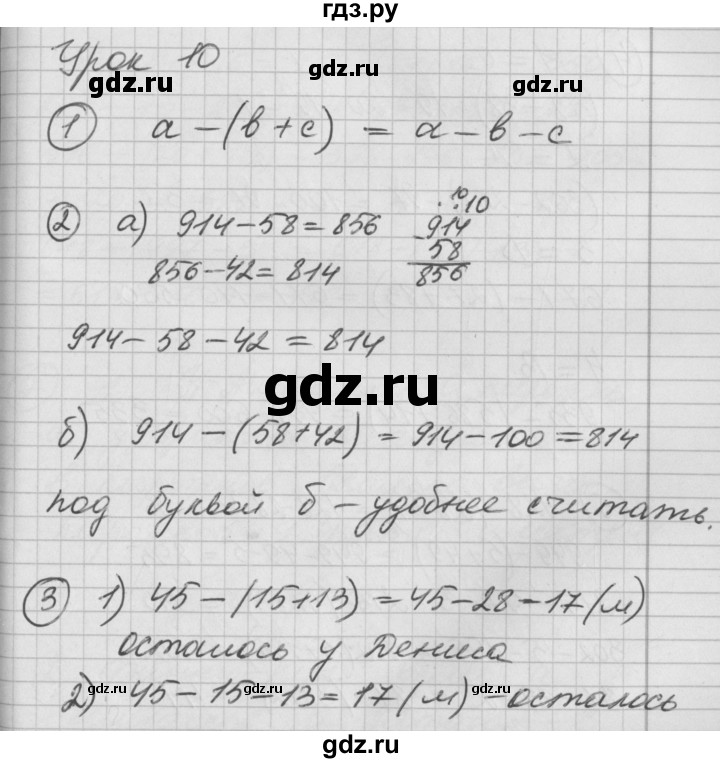 гдз.ру
Урок 10
gdz.ru
gdz.ru
1 a-(в+с) = a-в-с
2 а) 914-58=856
. 10 .10
914
- 58
856
856-42=814
914-58-42=814
gdz.ru
б) 914-(58+42)=914-100=814
под буквой б - удобнее считать.
gdz.ru
gdz.ru
3 1) 45-(15+13)=45-28-17(м)
осталось у Дениса
gdz.ru
gdz.ru
gdz.ru
2) 45-15-13=17(м)-осталось
gdz.ru